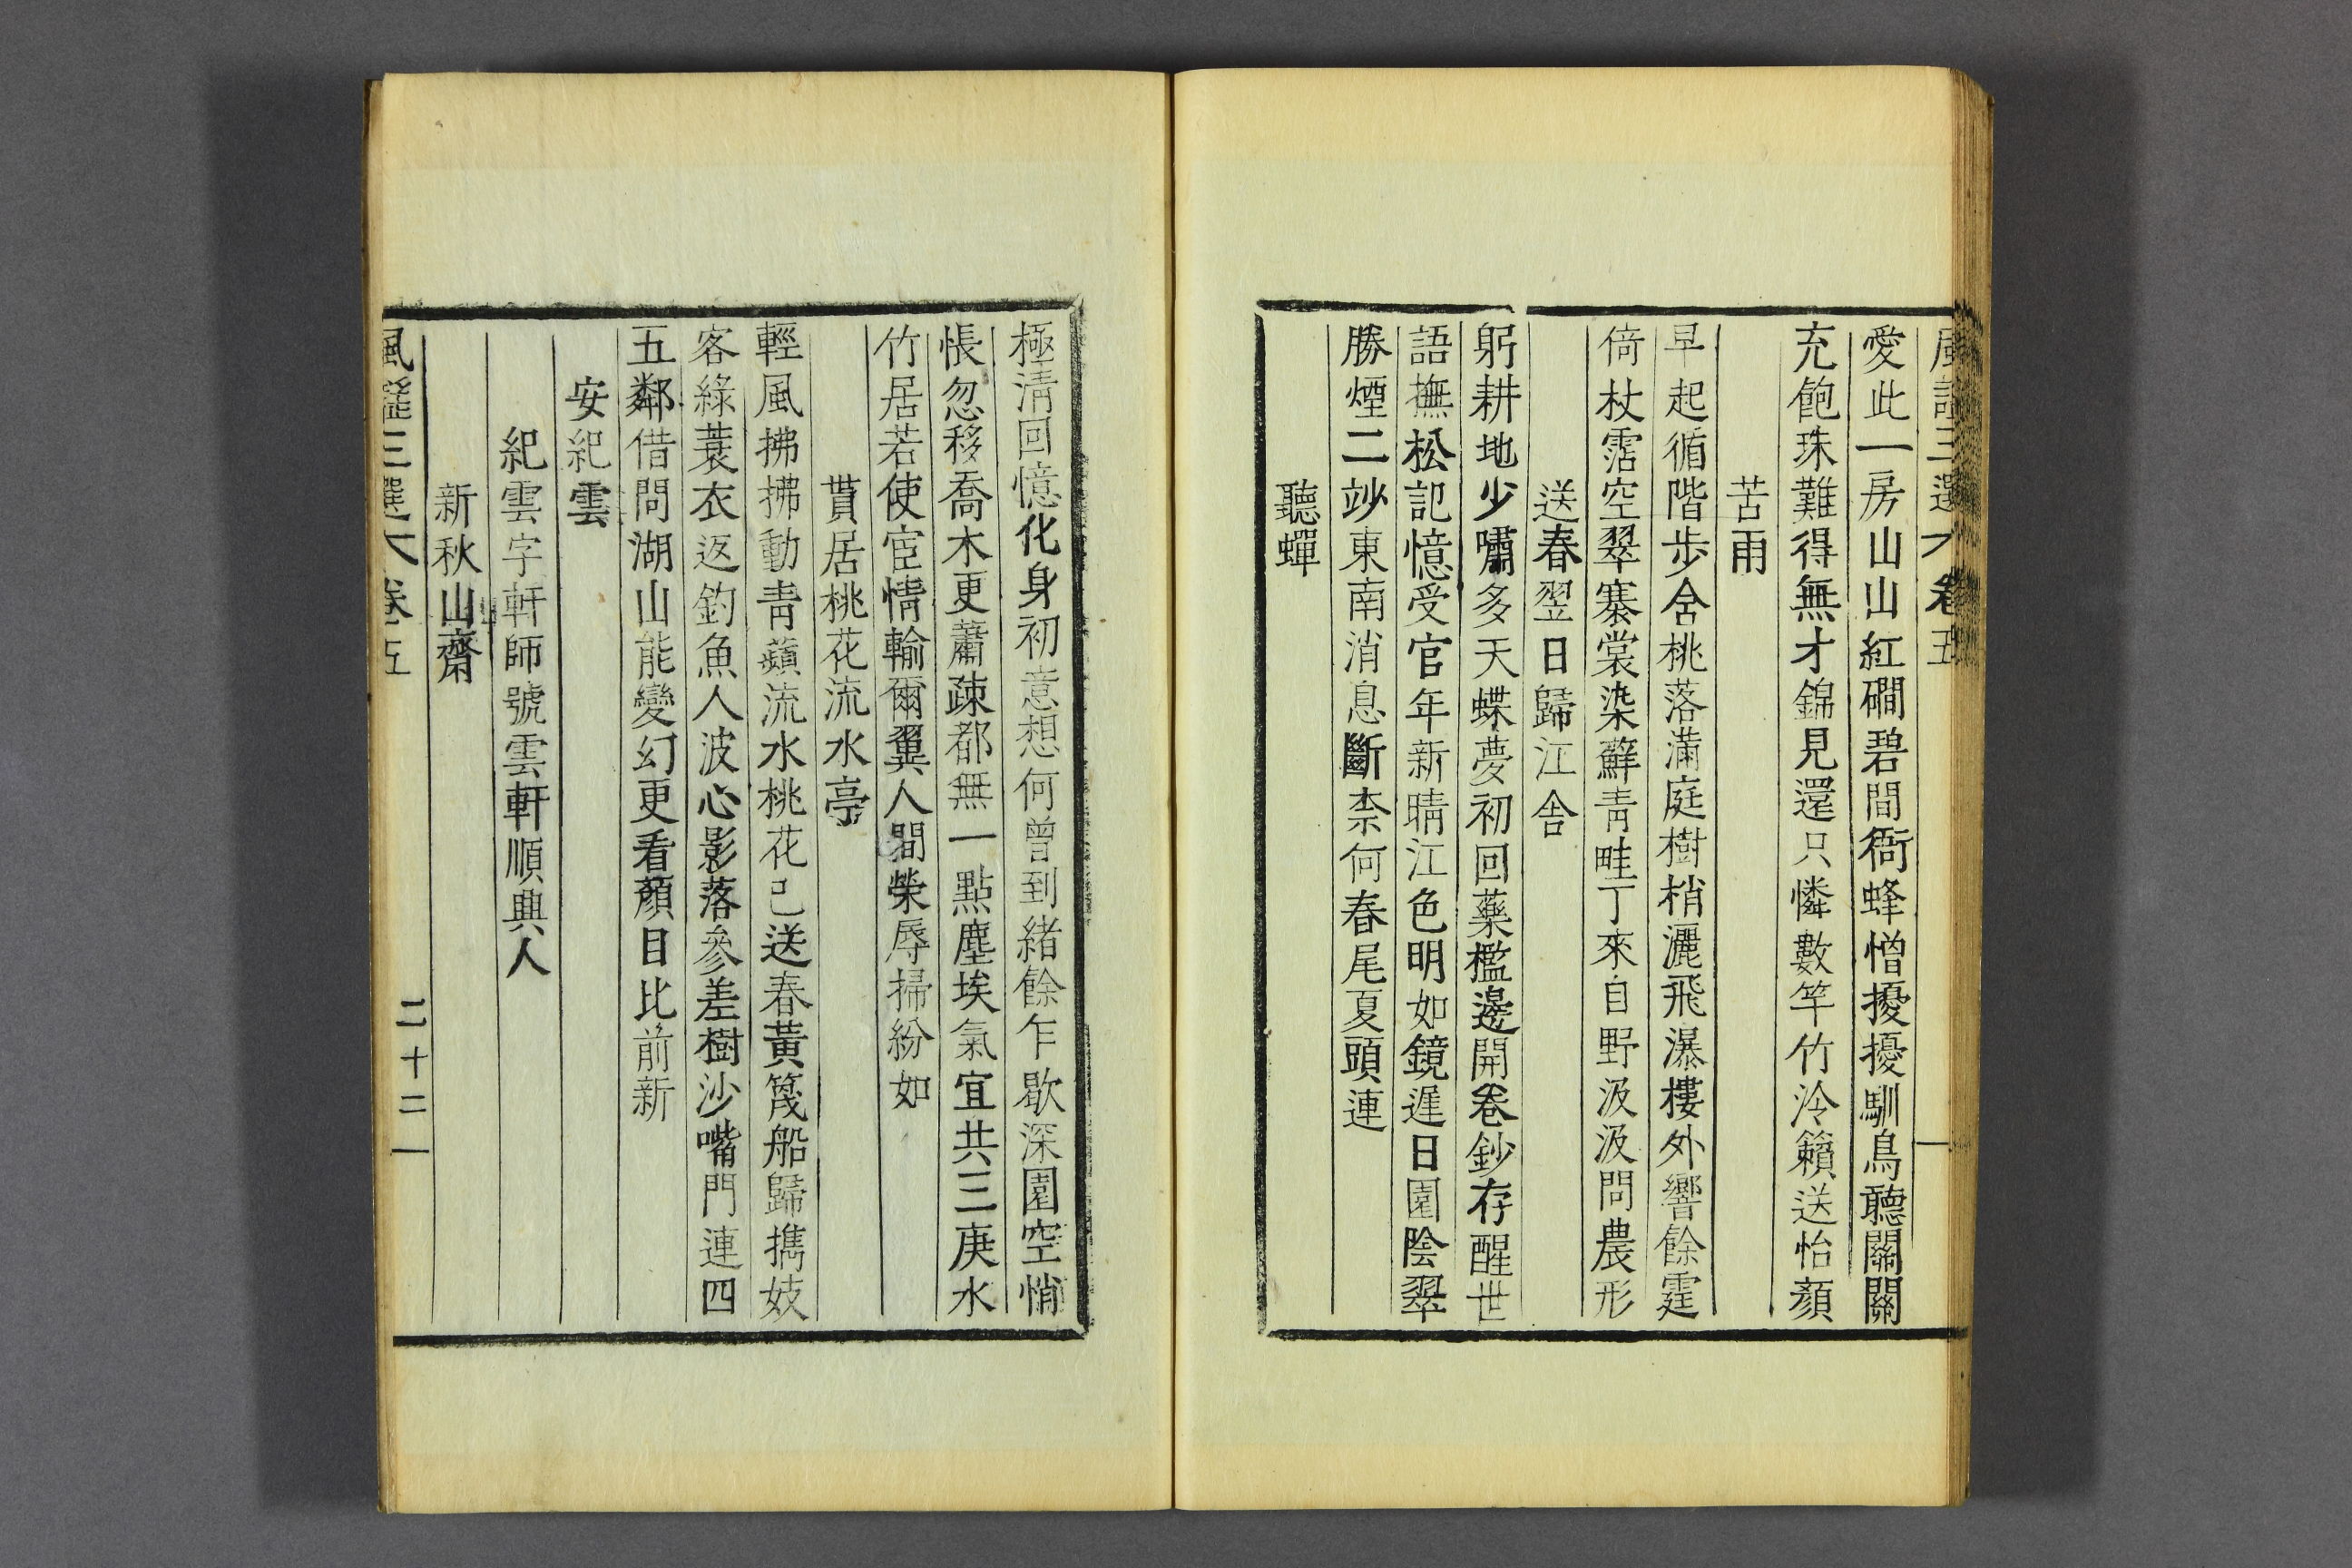 風謠三選 卷五
愛此一房山山紅磵碧間衙蜂憎擾擾馴鳥聽關關
充飽珠難得無才錦見還只憐數竿竹泠籟送怡顏
苦雨
早起循階步含桃落滿庭樹梢灑飛瀑樓外響餘霆
倚杖霑空翠褰裳染蘚青畦丁來自野汲汲問農形
送春翌日歸江舍
躬耕地少嘯多天蝶夢初回藥檻邊開卷鈔存醒世
語撫松記憶受官年新晴江色明如鏡遲日園陰翠
勝煙二竗東南消息斷柰何春尾夏頭連
聽蟬
極淸回憶化身初意想何曾到緖餘乍歇深園空悄
悵忽移喬木更蕭疎都無一點塵埃氣宜共三庚水
竹居若使宦情輸爾翼人間榮辱掃紛如
貰居桃花流水亭
輕風拂拂動靑蘋流水桃花已送春黃篾船歸擕妓
客綠蓑衣返釣魚人波心影落參差樹沙嘴門連四
五鄰借問湖山能變幻更看顏目比前新
安紀雲
紀雲字軒師號雲軒順興人
新秋山齋
風謠三選 卷五 二十二